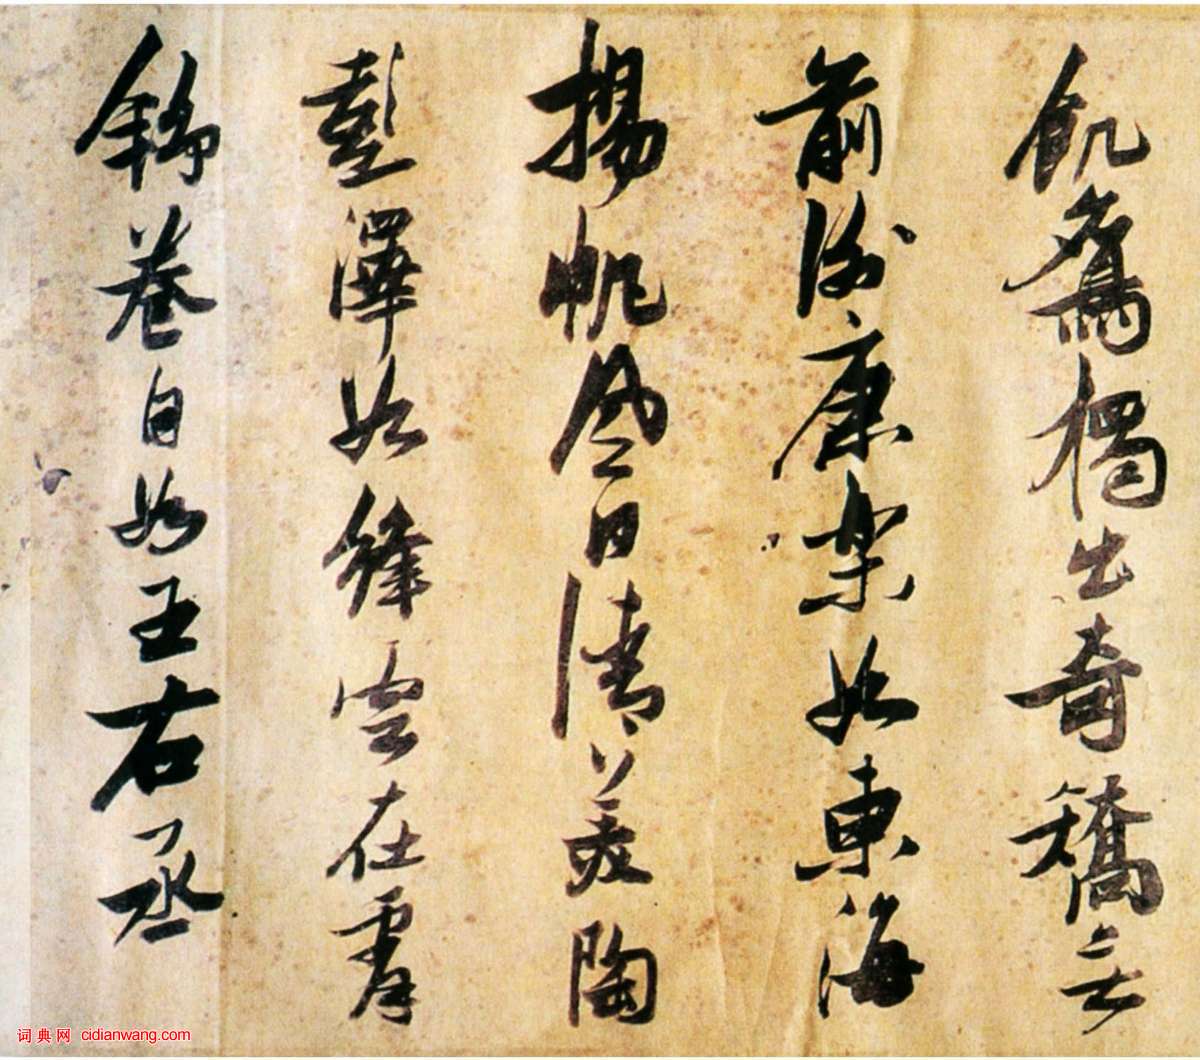 飢鷹獨出奇矯无
前謝康樂如東海
揚帆風日清美陶
彭澤如絳雲在霄
舒卷自如王右丞
词典网 cidianwang.com